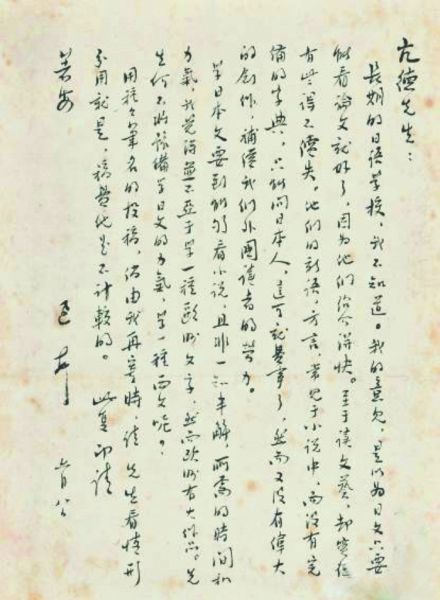 亢德先生：
長期的日語學校，我不知道。我的意見，是以为日文只要
能看論文就好了，因为他们绍介得快。至于读文藝，却實在
有些得不償失。他们的新語，方言，常見于小說中，而没有完
備的字典，只能問日本人，這可就費事了，然而又没有偉大
的創作，補償我们外國讀者的勞力。
學日本文要到能夠看小說，且非一知半解，所需的時间和
力氣，我覺得並不亞于學一種歐洲文字，然而歐洲有大作品。先
生何不將豫備學日文的力氣，學一種西文呢？
用種々筆名的投稿，倘由我再寄時，請先生看情形
分用就是，稿費他是不計較的。 此复 即請
著安
迅 上 六月八日